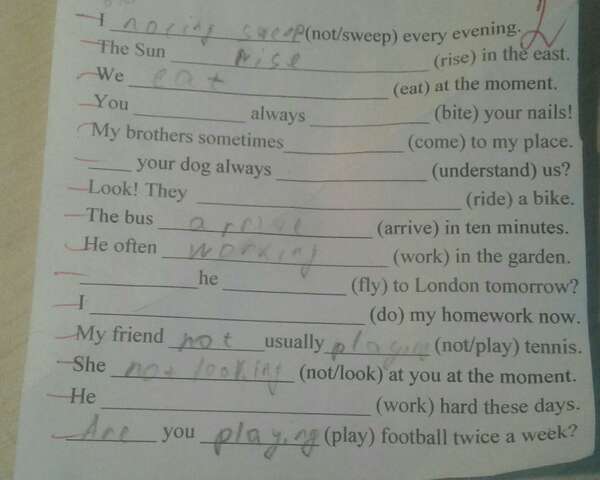 I noeing sweep (not/sweep) every evening.
The Sun rise (rise) in the east.
We eat (eat) at the moment.
You __________ always __________ (bite) your nails!
My brothers sometimes __________ (come) to my place.
____ your dog always __________ (understand) us?
Look! They __________ (ride) a bike.
The bus arrive (arrive) in ten minutes.
He often working (work) in the garden.
__________ he __________ (fly) to London tomorrow?
I __________ (do) my homework now.
My friend not usually playing (not/play) tennis.
She not looking (not/look) at you at the moment.
He __________ (work) hard these days.
Are you playing (play) football twice a week?